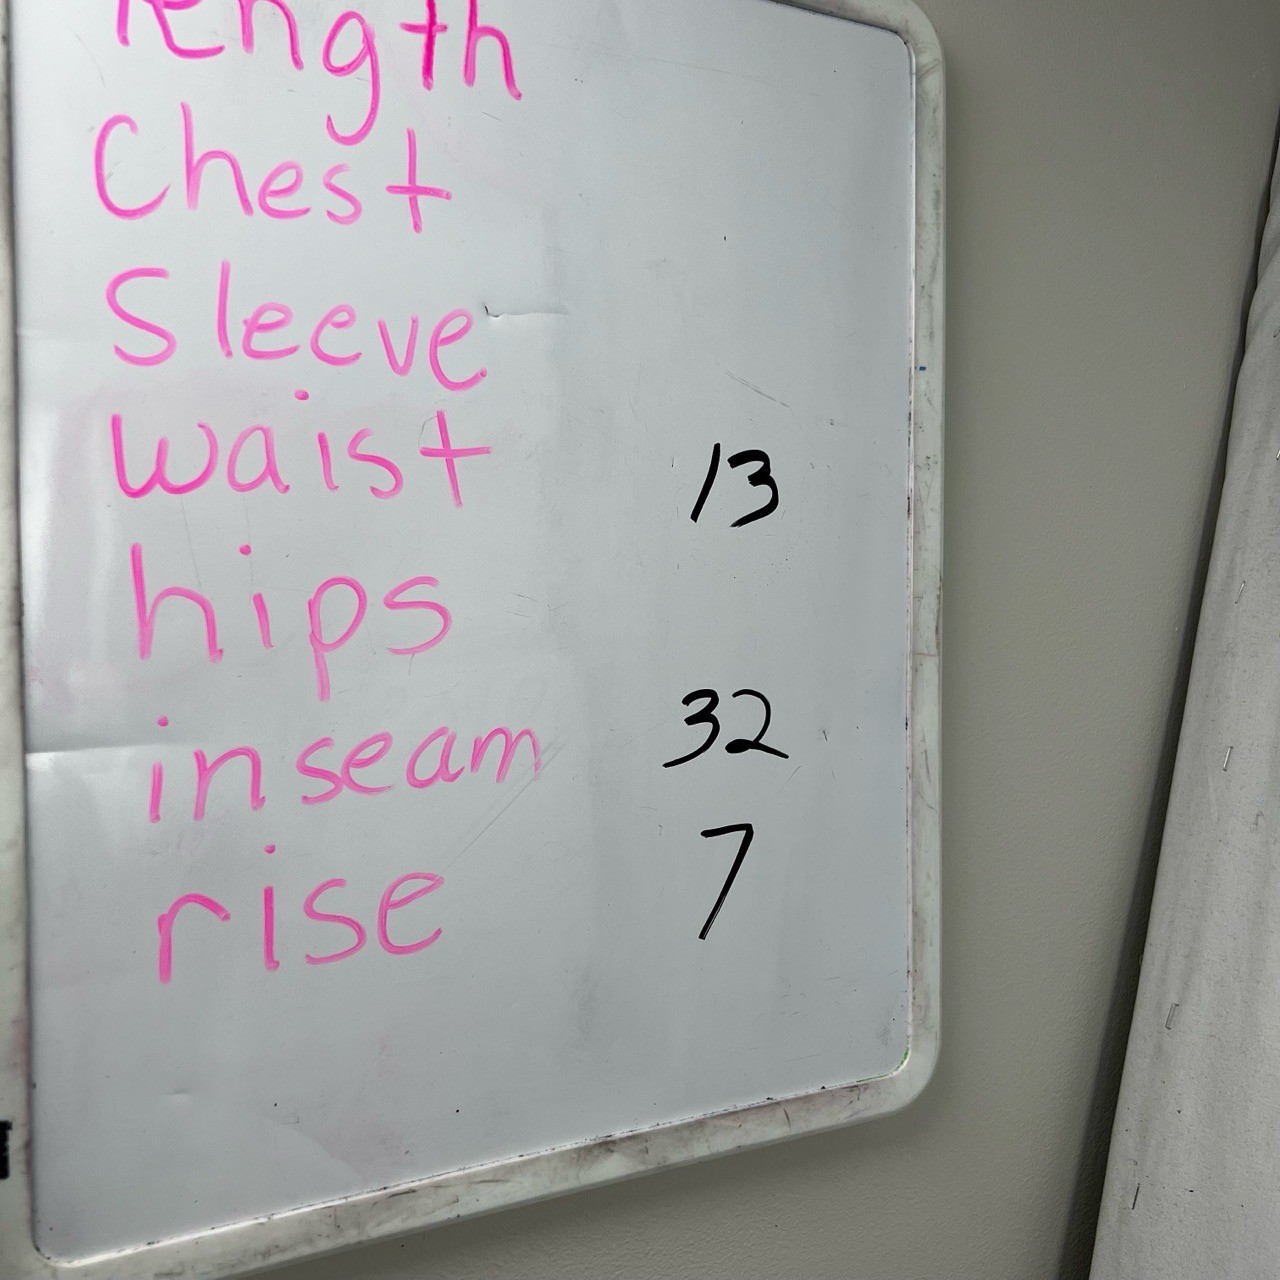 length
Chest
Sleeve
waist 13
hips
inseam 32
rise 7